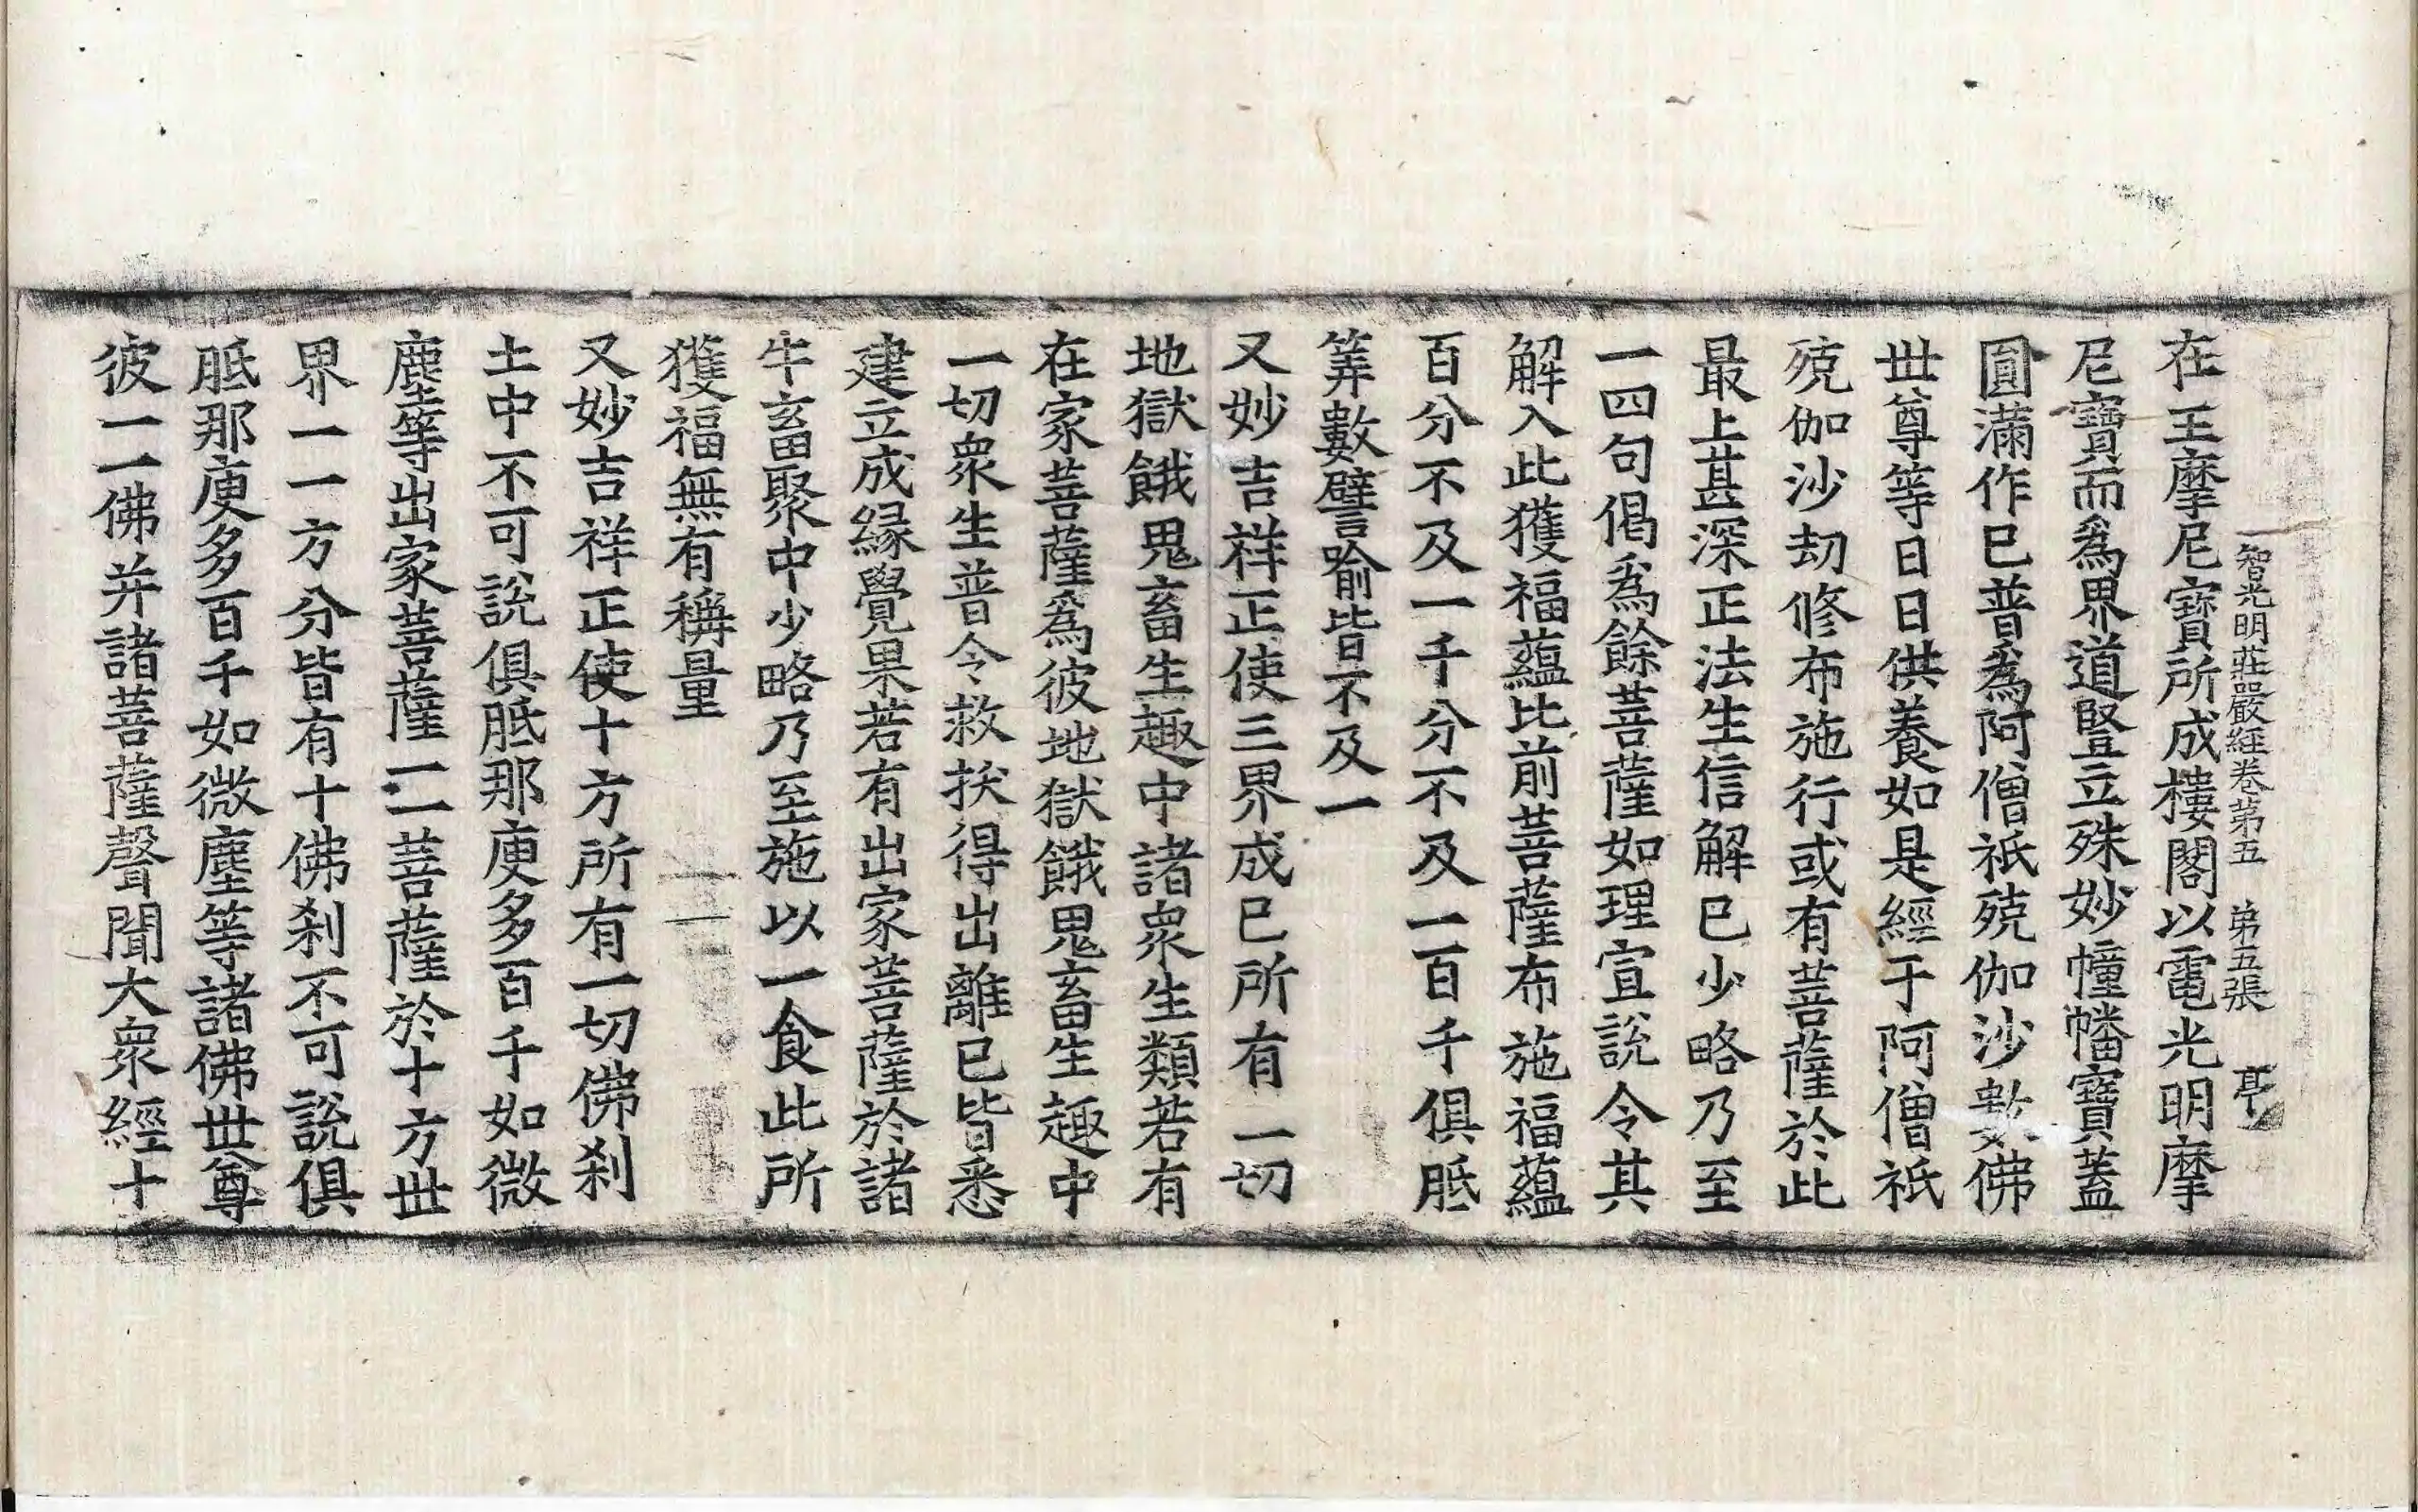 智光明莊嚴経卷苐五　苐五張　亭
在王摩尼寶所成樓閣以電光明摩
尼寶而爲界道豎立殊妙幢幡寶蓋
圓滿作已普爲阿僧祇殑伽沙數佛
世尊等日日供養如是經于阿僧祇
殑伽沙劫修布施行或有菩薩於此
最上甚深正法生信解已少略乃至
一四句偈爲餘菩薩如理宣說令其
解入此獲福蘊比前菩薩布施福蘊
百分不及一千分不及一百千俱胝
筭數譬喻皆不及一
又妙吉祥正使三界成已所有一切
地獄餓鬼畜生趣中諸衆生類若有
在家菩薩爲彼地獄餓鬼畜生趣中
一切衆生普令救拔得出離已皆悉
建立成縁覺果若有出家菩薩於諸
牛畜聚中少略乃至施以一食此所
獲福無有稱量
又妙吉祥正使十方所有一切佛刹
土中不可說俱胝那庾多百千如微
塵等出家菩薩一一菩薩於十方世
界一一方分皆有十佛刹不可說俱
胝那庾多百千如微塵等諸佛世尊
彼一一佛并諸菩薩聲聞大衆經十